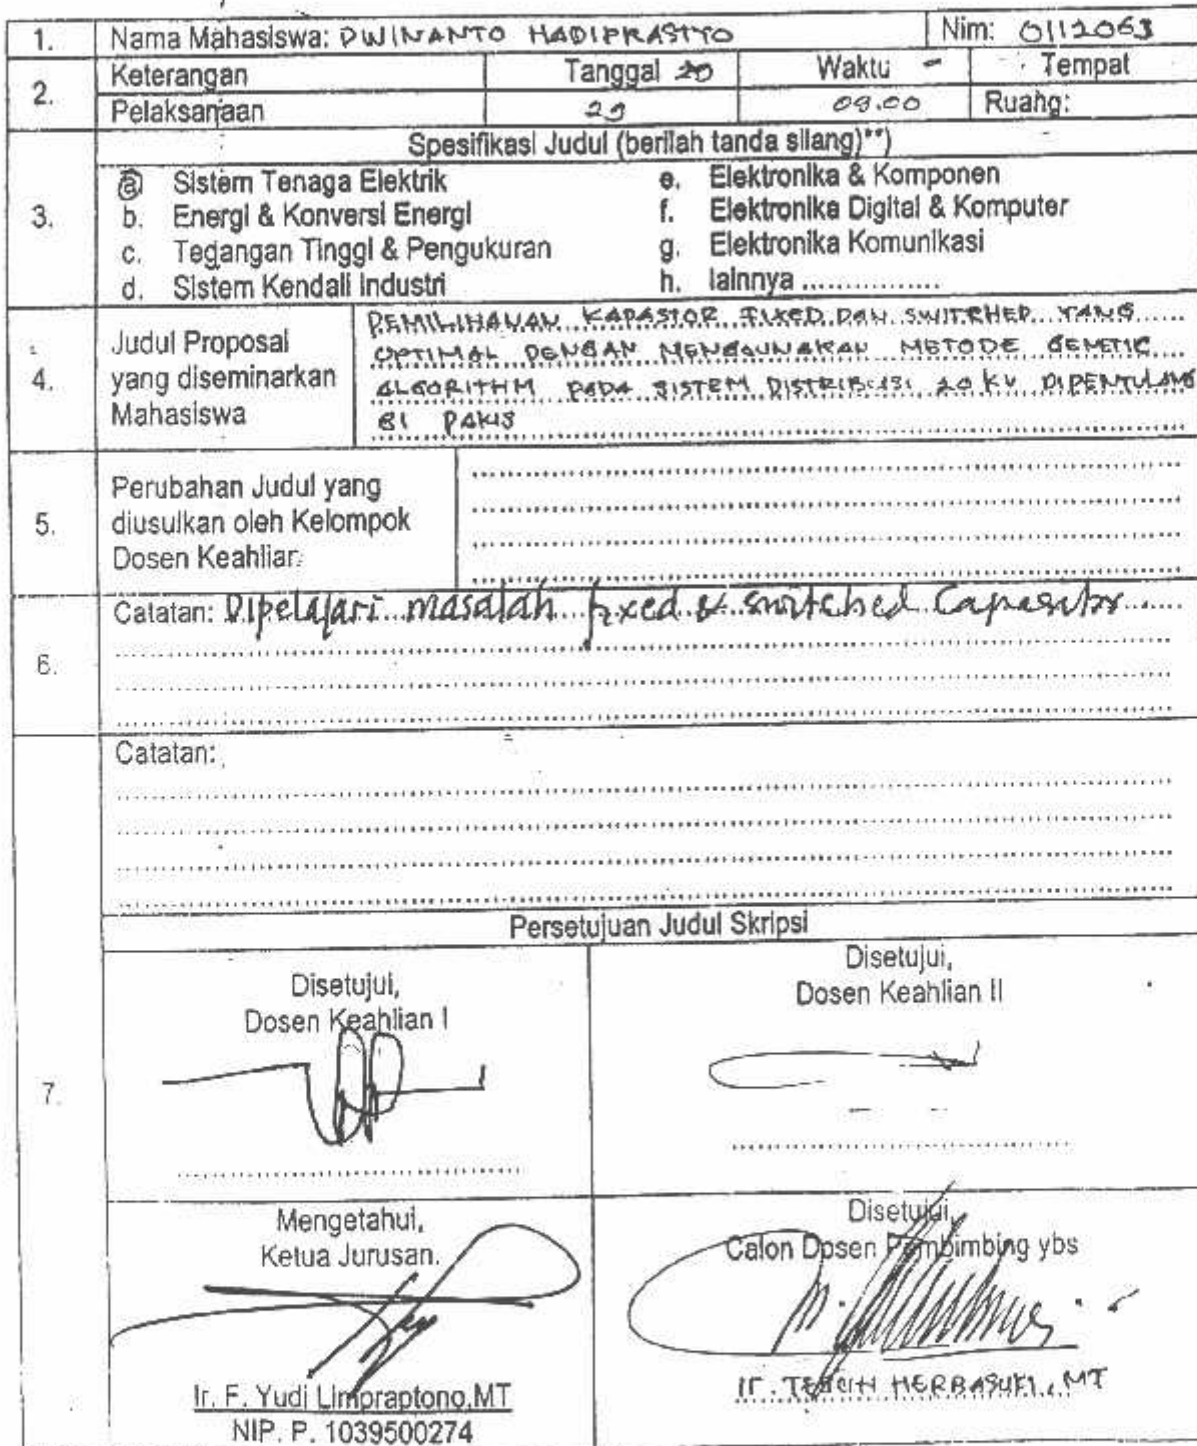 1. Nama Mahasiswa: DWINANTO HADIPRASTYO Nim: 0112063
2. Keterangan Tanggal 20 Waktu - Tempat
Pelaksanaan 29 09.00 Ruang:
Spesifikasi Judul (berilah tanda silang)**)
3.
a. Sistem Tenaga Elektrik e. Elektronika & Komponen
b. Energi & Konversi Energi f. Elektronika Digital & Komputer
c. Tegangan Tinggi & Pengukuran g. Elektronika Komunikasi
d. Sistem Kendali Industri h. lainnya ...............
4. Judul Proposal yang diseminarkan Mahasiswa
PEMILIHANAN KAPASTOR FIXED DAN SWITCHED YANG
OPTIMAL DENGAN MENGGUNAKAN METODE GENETIC
ALGORITHM PADA SISTEM DISTRIBUSI 20 KV DIPENYULANG
PAKIS
5. Perubahan Judul yang
diusulkan oleh Kelompok
Dosen Keahlian
6. Catatan: Dipelajari masalah fixed & switched Capasitor
Catatan:
Persetujuan Judul Skripsi
7.
Disetujui,
Dosen Keahlian I
Disetujui,
Dosen Keahlian II
Mengetahui,
Ketua Jurusan.
Ir. F. Yudi Limpraptono,MT
NIP. P. 1039500274
Disetujui,
Calon Dosen Pembimbing ybs
Ir. TEGUH HERBASUKI, MT